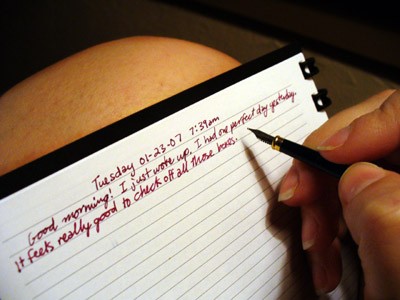 Tuesday 01-23-07 7:39am
Good morning! I just woke up. I had one perfect day yesterday.
It feels really good to check off all those boxes.